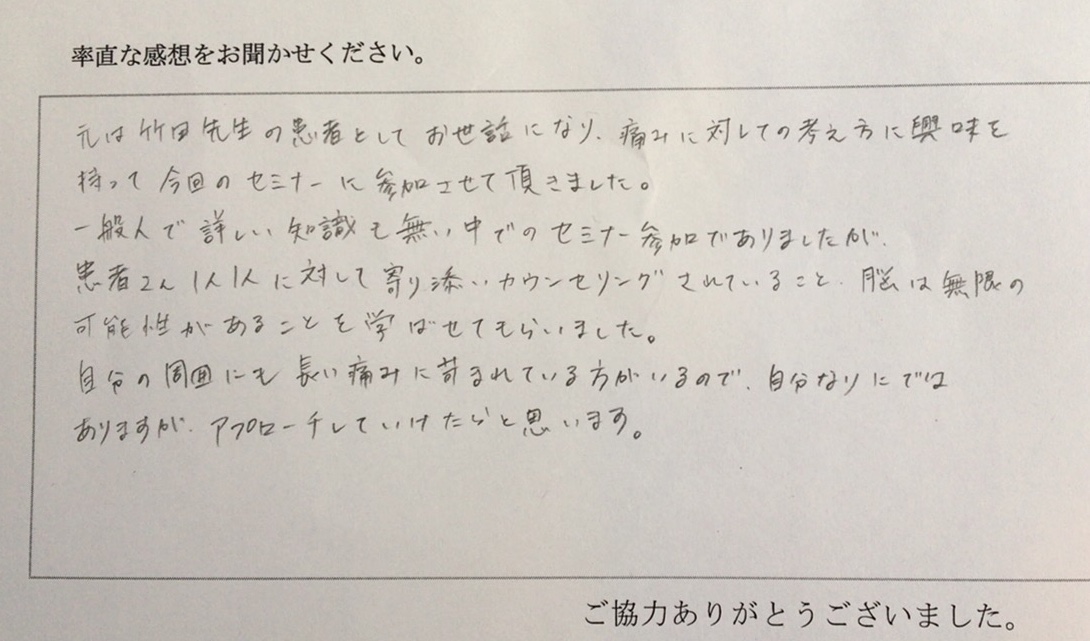 率直な感想をお聞かせください。
元は竹田先生の患者としてお世話になり、痛みに対しての考え方に興味を
持って今回のセミナーに参加させて頂きました。
一般人で詳しい知識も無い中でのセミナー参加でありましたが、
患者さん1人1人に対して寄り添いカウンセリングされていること、脳は無限の
可能性があることを学ばせてもらいました。
自分の周囲にも長い痛みに苛まれている方がいるので、自分なりにでは
ありますが、アプローチしていけたらと思います。
ご協力ありがとうございました。